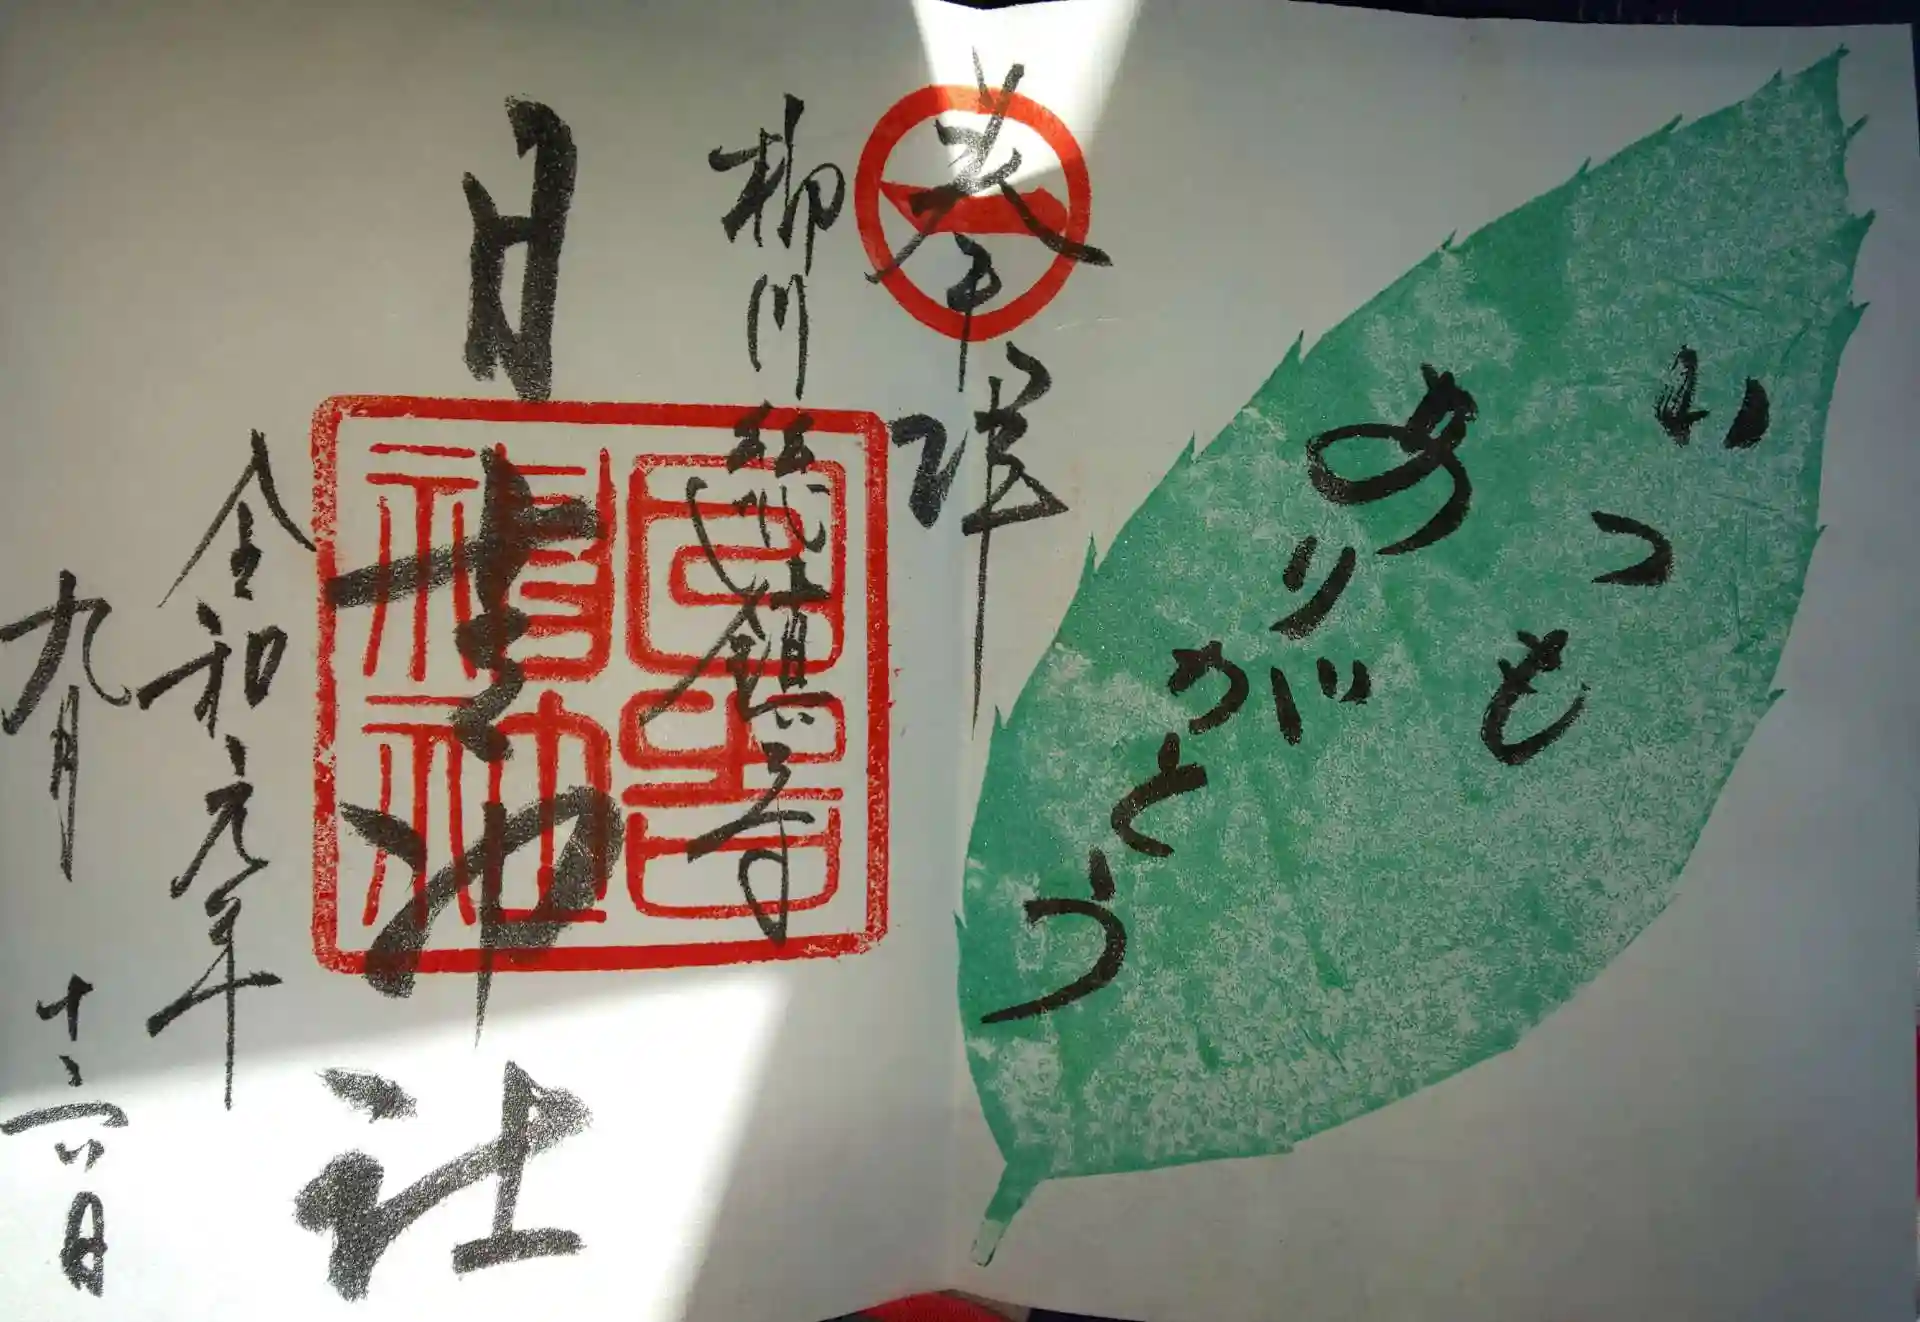 いつも
ありがとう
奉拝
柳川総鎮守
日吉神社
令和元年
九月十六日